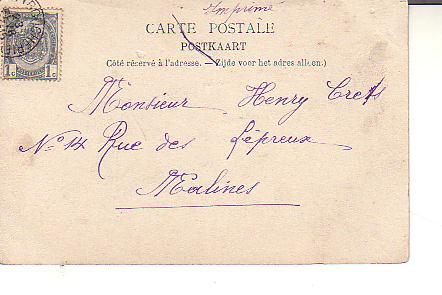 Imprimé
CARTE POSTALE
POSTKAART
Côté réservé à l'adresse. — Zijde voor het adres alleen.)
1c 1c
Monsieur Henry
No 14 Rue des Lépreux
Malines